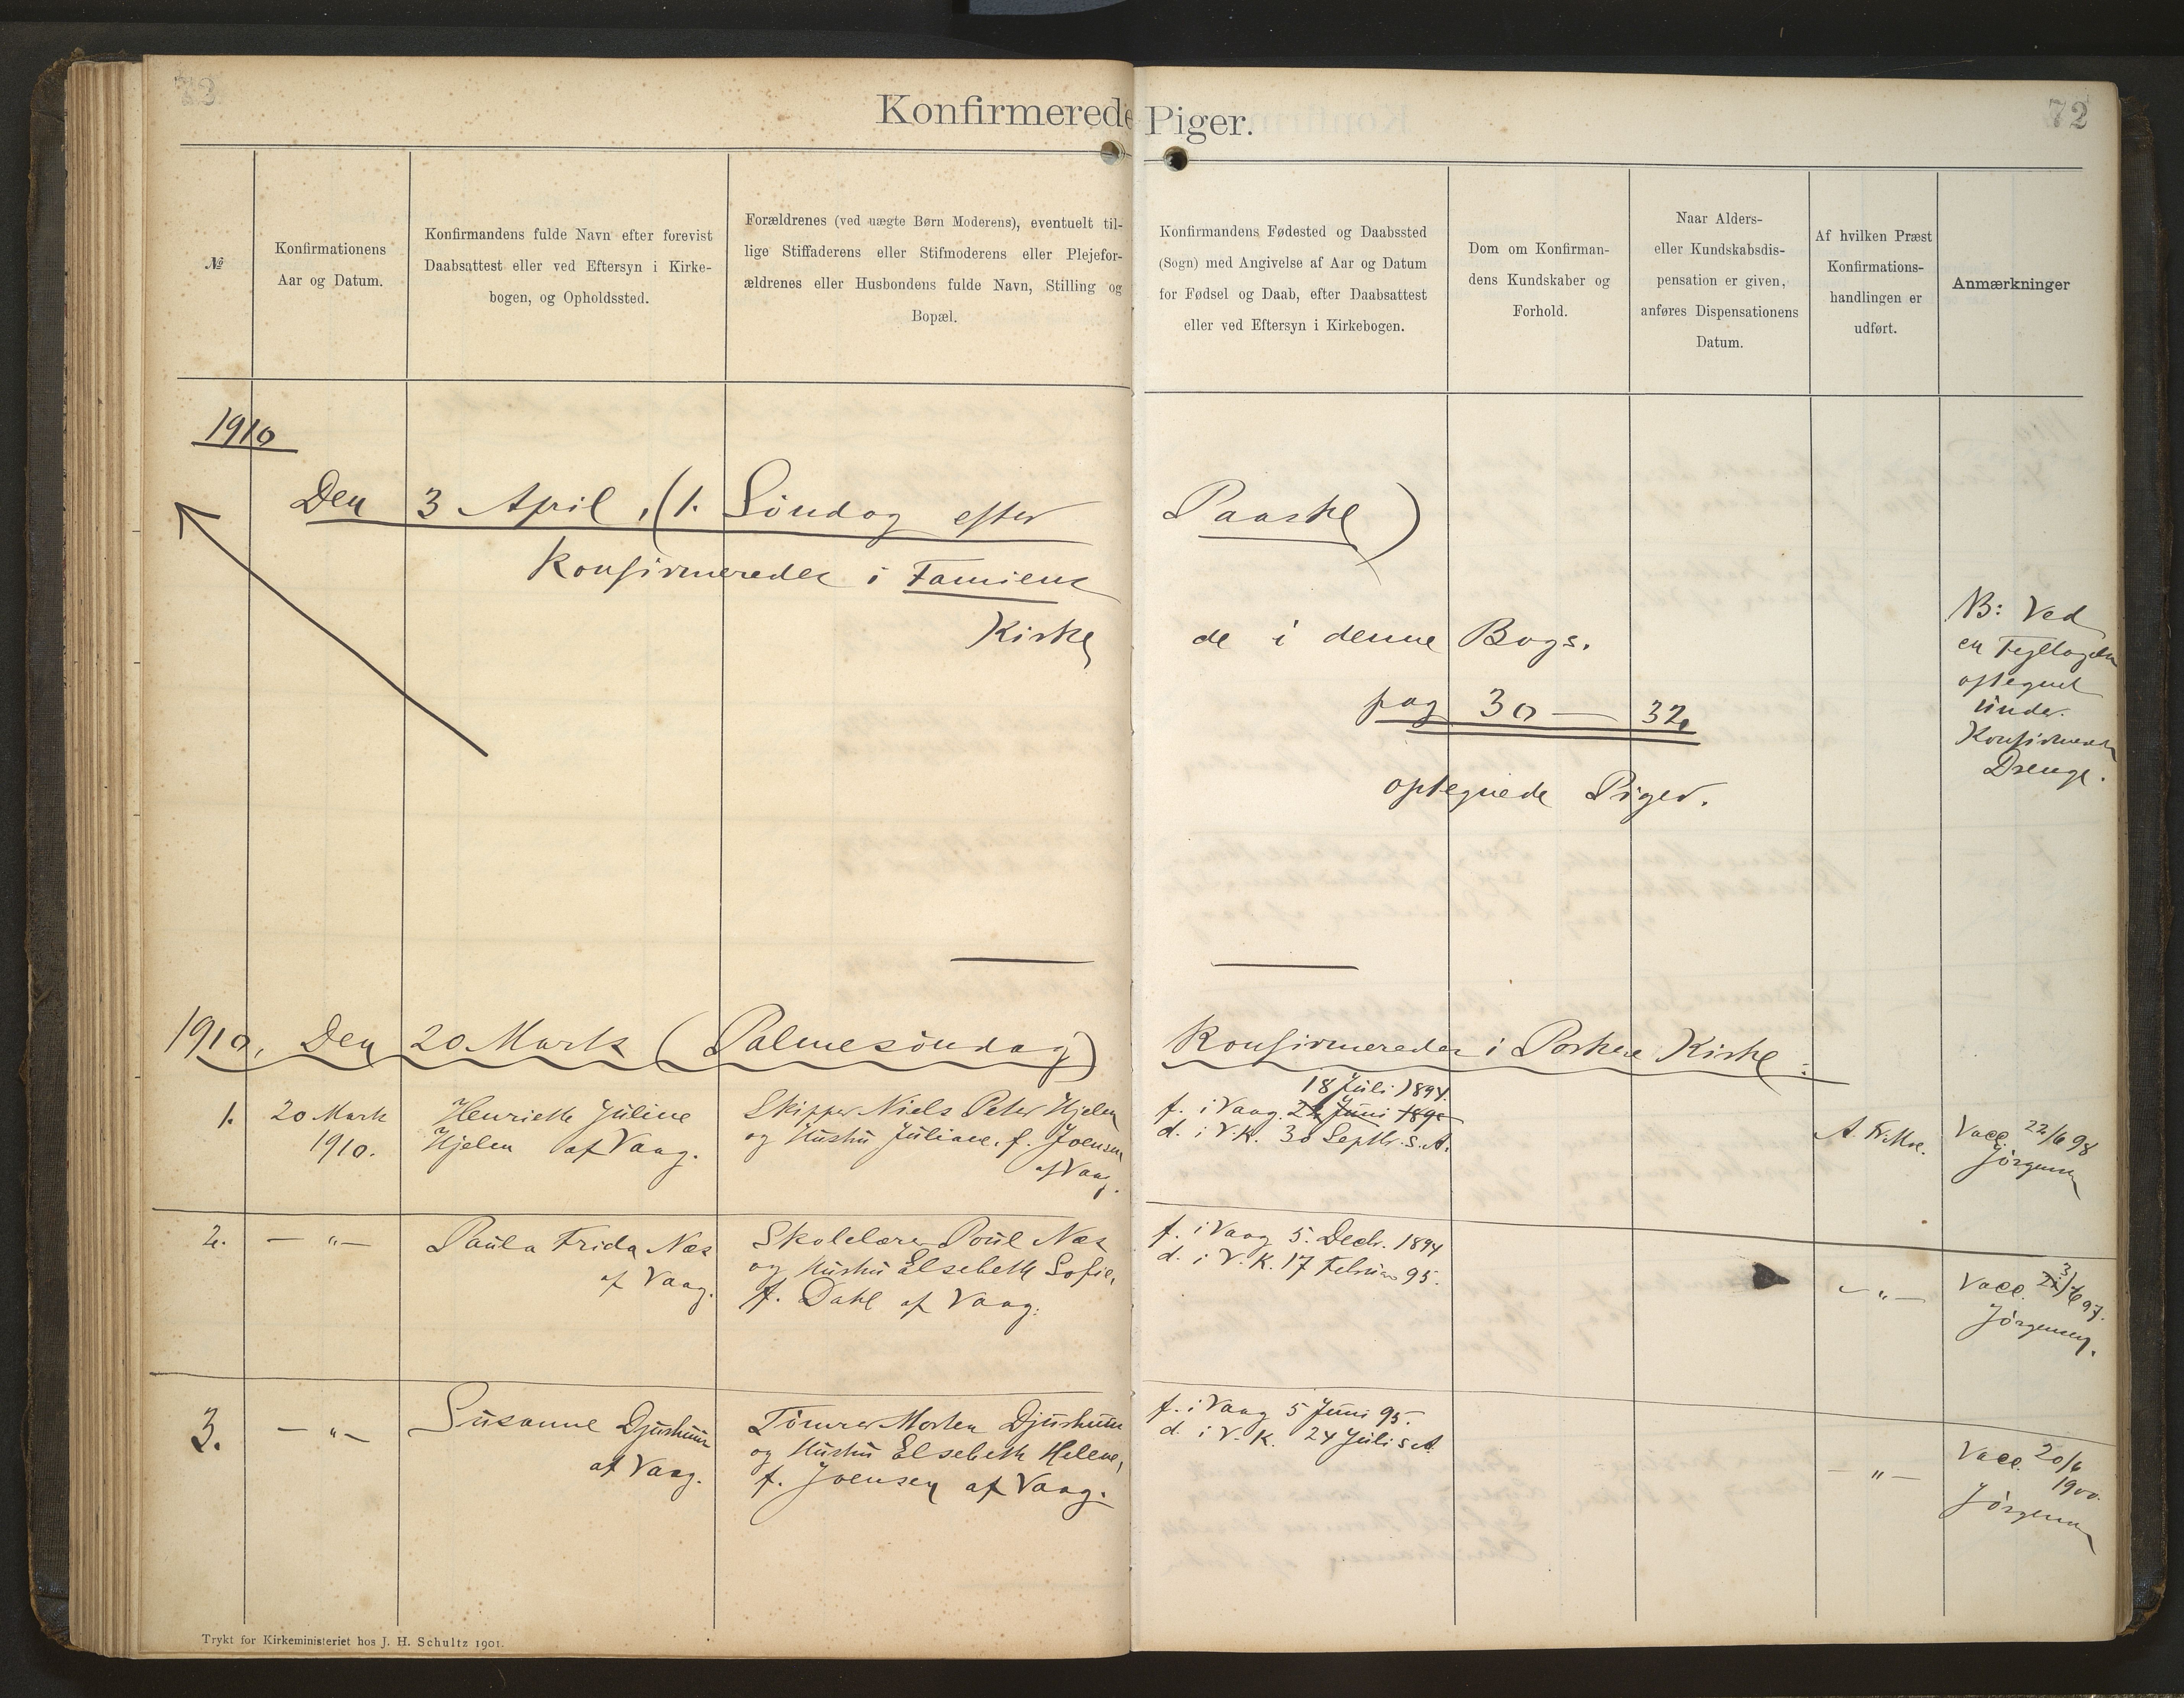 72
Konfirmerede Piger.
72
№
Konfirmationens
Aar og Datum.
Konfirmandens fulde Navn efter forevist
Daabsattest eller ved Eftersyn i Kirke-
bogen, og Opholdssted.
Forældrenes (ved uægte Børn Moderens), eventuelt til-
lige Stiffaderens eller Stifmoderens eller Plejefor-
ældrenes eller Husbondens fulde Navn, Stilling og
Bopæl.
Konfirmandens Fødested og Daabssted
(Sogn) med Angivelse af Aar og Datum
for Fødsel og Daab, efter Daabsattest
eller ved Eftersyn i Kirkebogen.
Dom om Konfirman-
dens Kundskaber og
Forhold.
Naar Alders-
eller Kundskabsdis-
pensation er given,
anføres Dispensationens
Datum.
Af hvilken Præst
Konfirmations-
handlingen er
udført.
Anmærkninger
1910
Den 3 April, (1. Søndag efter Paaske)
Konfirmeredes i Famiens
Kirke de i denne Bogs.
pag 30 — 32
optegnede Piger.
NB: Ved
en Fejltagelse
optegnet
under
Konfirmerede
Drenge.
1910, Den 20 Marts (Palmesøndag) Konfirmeredes i Porkere Kirke:
1.
20 Marts
1910.
Henriette Juline
Hjelm af Vaag.
Skipper Niels Peter Hjelm
og Hustru Juliane, f. Joensen
af Vaag.
18 Juli 1894.
f. i Vaag 24 Juni 189
d. i V. K. 30 Septbr. s. A.
A. Fr. Moe.
Vacc. 22/6 98
Jörgensen
2.
— " —
Paula Frida Næs
af Vaag.
Skolelærer Poul Næs
og Hustru Elsebeth Sofie,
f. Dahl af Vaag.
f. i Vaag 5. Decbr. 1894
d. i V. K. 17 Februar 95.
— " —
Vacc. 23/6 97.
Jörgensen.
3.
— " —
Susanne Djurhuus
af Vaag.
Tømrer Morten Djurhuus
og Hustru Elsebeth Helene,
f. Joensen af Vaag.
f. i Vaag 5 Juni 95.
d. i V. K. 24 Juli s A.
— " —
Vacc. 20/6
1900.
Jörgensen
Trykt for Kirkeministeriet hos J. H. Schultz 1901.